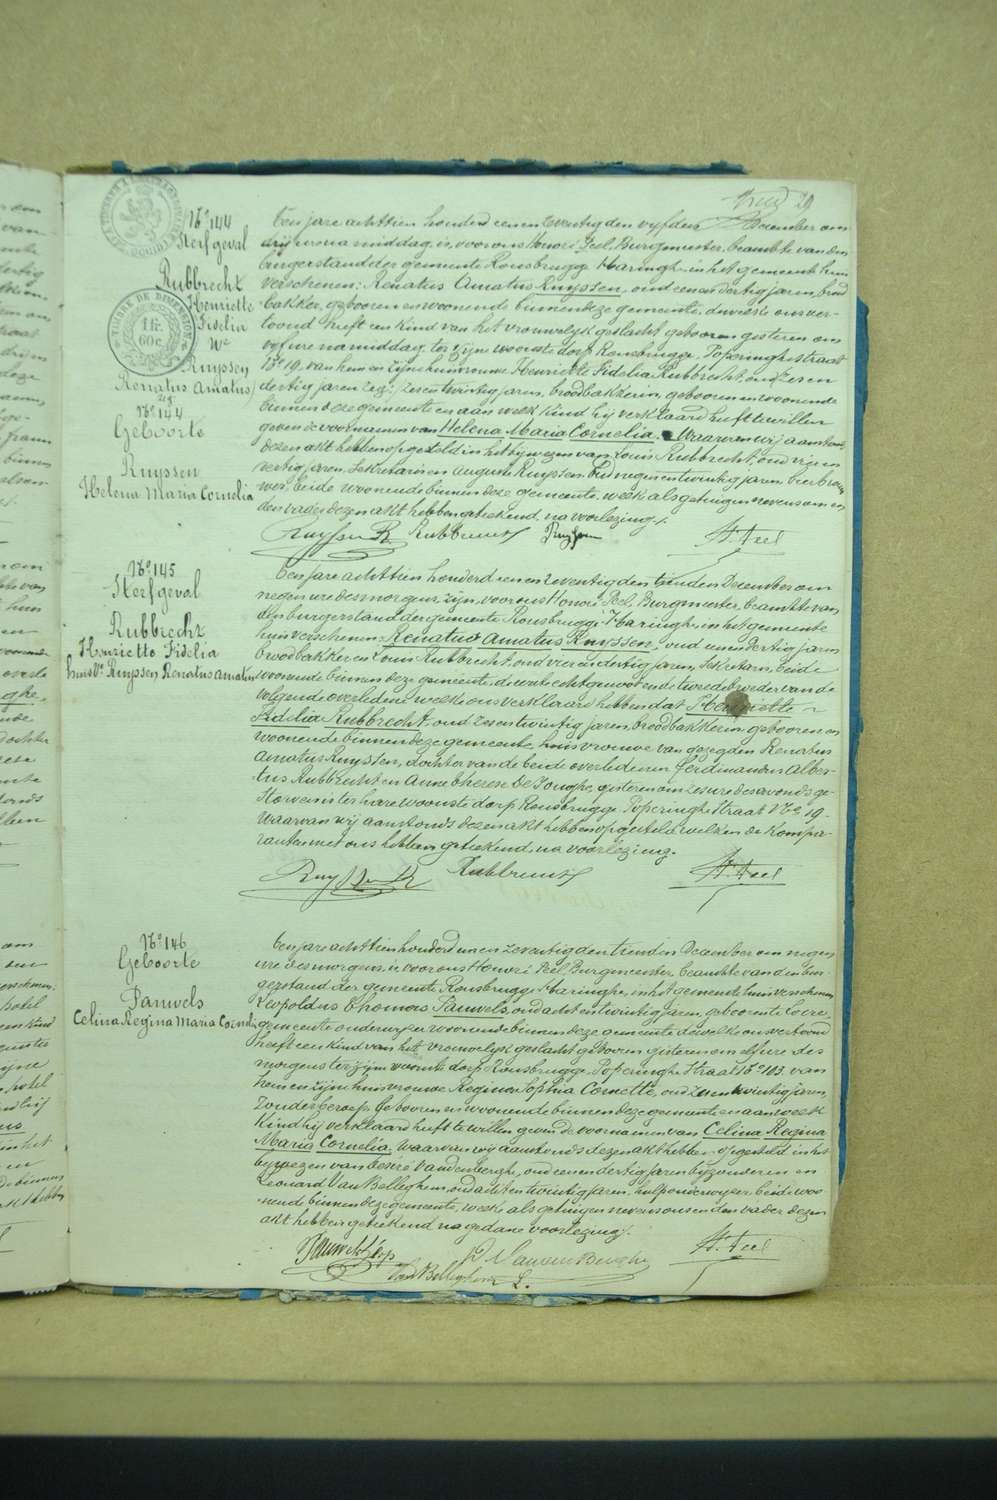 29
N° 144
Sterfgeval
Rubbrecht
Henriette
Fidelia
We
Ruyssen
Renatus Amatus
TIMBRE DE DIMENSION
1 fr.
60 c.
zeg:
N° 144
Geboorte
Ruyssen
Helena Maria Cornelia
Een jare achttien honderd een en zeventig den vyfden December om
drij uren na middag, is voor ons Honoré Peel, Burgmeester, beambte van den
burgerstand der gemeente Rousbrugge Haringhe in het gemeente huis
verschenen: Renatus Amatus Ruyssen, oud een en dertig jaren, brood
bakker, gebooren en woonende binnen deze gemeente, dewelke ons ver-
toond heeft een kind van het vrouwelyk geslacht gebooren gisteren om
vyf ure na middag, ter zyne woonste dorp Rousbrugge, Poperinghe straat
N° 19, van hem en zyne huisvrouwe Henriette Fidelia Rubbrecht, oud zes en
dertig jaren zeg: zes en twintig jaren, broodbakkerin, gebooren en woonende
binnen deze gemeente en aan welk kind hy verklaard heeft te willen
geven de voornamen van Helena Maria Cornelia. Waarvan wij aanstonds
dezen akt hebben opgesteld in het bijwezen van Louis Rubbrecht, oud vier en
dertig jaren, Sekretaris en Auguste Ruyssen, oud negen en twintig jaren, bierbrou
wer, beide woonende binnen deze gemeente, welke als getuigen nevens ons en
den vader dezen akt hebben geteekend, na voorlezing.
Ruyssen R Rubbrecht Ruyssen H. Peel
N° 145
Sterfgeval
Rubbrecht
Henriette Fidelia
huisve Ruyssen Renatus Amatus
Een jare achttien honderd een en zeventig den tienden December om
negen ure des morgens zyn, voor ons Honoré Peel, Burgmeester, beambte van
den burgerstand der gemeente Rousbrugge Haringhe, in het gemeente
huis verschenen Renatus Amatus Ruyssen, oud een en dertig jaren,
broodbakker en Louis Rubbrecht, oud vier en dertig jaren, Sekretaris, beide
woonende binnen deze gemeente, de eerste echtgenoot en de tweede broeder van de
volgende overledene welke ons verklaard hebben dat Henriette
Fidelia Rubbrecht, oud zes en twintig jaren, broodbakkerin, gebooren en
woonende binnen deze gemeente, huisvrouwe van gezegden Renatus
Amatus Ruyssen, dochter van de beide overledenen Ferdinandus Alber-
tus Rubbrecht en Anne Therese De Jonghe, gisteren om zes ure des avonds ge-
storven is ter hare woonste dorp Rousbrugge, Poperinghe Straat N° 19.
Waarvan wij aanstonds dezen akt hebben opgesteld welken de kompa-
ranten met ons hebben geteekend, na voorlezing.
Ruyssen R Rubbrecht H. Peel
N° 146
Geboorte
Pauwels
Celina Regina Maria Cornelia
Een jare achttien honderd een en zeventig den tienden December om negen
ure des morgens, is voor ons Honoré Peel, Burgmeester, beambte van den bur-
gerstand der gemeente Rousbrugge Haringhe, in het gemeente huis verschenen
Leopoldus Thomas Pauwels, oud acht en twintig jaren, gebooren te
gemeente onderwyzer woonende binnen deze gemeente dewelke ons vertoond
heeft een kind van het vrouwelyk geslacht gebooren gisteren om elf ure des
morgens ter zijne woonste dorp Rousbrugge, Poperinghe Straat N° 103, van
hem en zyne huisvrouwe Regina Sophia Cornette, oud zes en twintig jaren,
zonder beroep, gebooren en woonende binnen deze gemeente en aan welk
kind hij verklaard heeft te willen geven de voornamen van Celina Regina
Maria Cornelia. Waarvan wij aanstonds dezen akt hebben opgesteld in het
bywezen van Désiré Vandenberghe, oud een en dertig jaren byzonderen en
Leonard Van Belleghem, oud acht en twintig jaren, hulponderwyzer beide woo
nende binnen deze gemeente, welke als getuigen nevens ons en den vader dezen
akt hebben geteekend na gedane voorlezing.
Pauwels Leop D. Vanden Berghe H. Peel
Van Belleghem L.